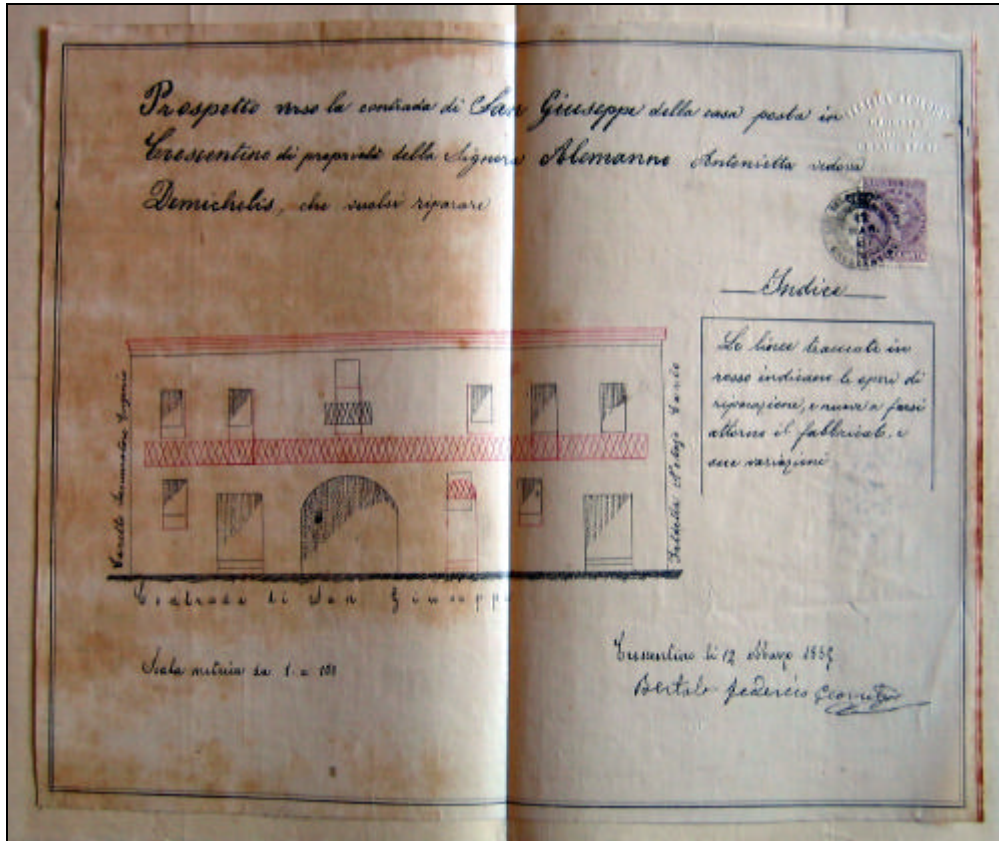 Prospetto verso la contrada di San Giuseppe della casa posta in
Crescentino di proprietà della Signora Alemanno Antonietta vedova
Demichelis, che vuolsi riparare
Indice
Le linee tracciate in
rosso indicano le opere di
riparazione, e nuove a farsi
attorno il fabbricato, e
sue variazioni
Contrada di San Giuseppe
Scala metrica da 1 a 100
Crescentino li 12 Marzo
Bertolo Federico Geometra